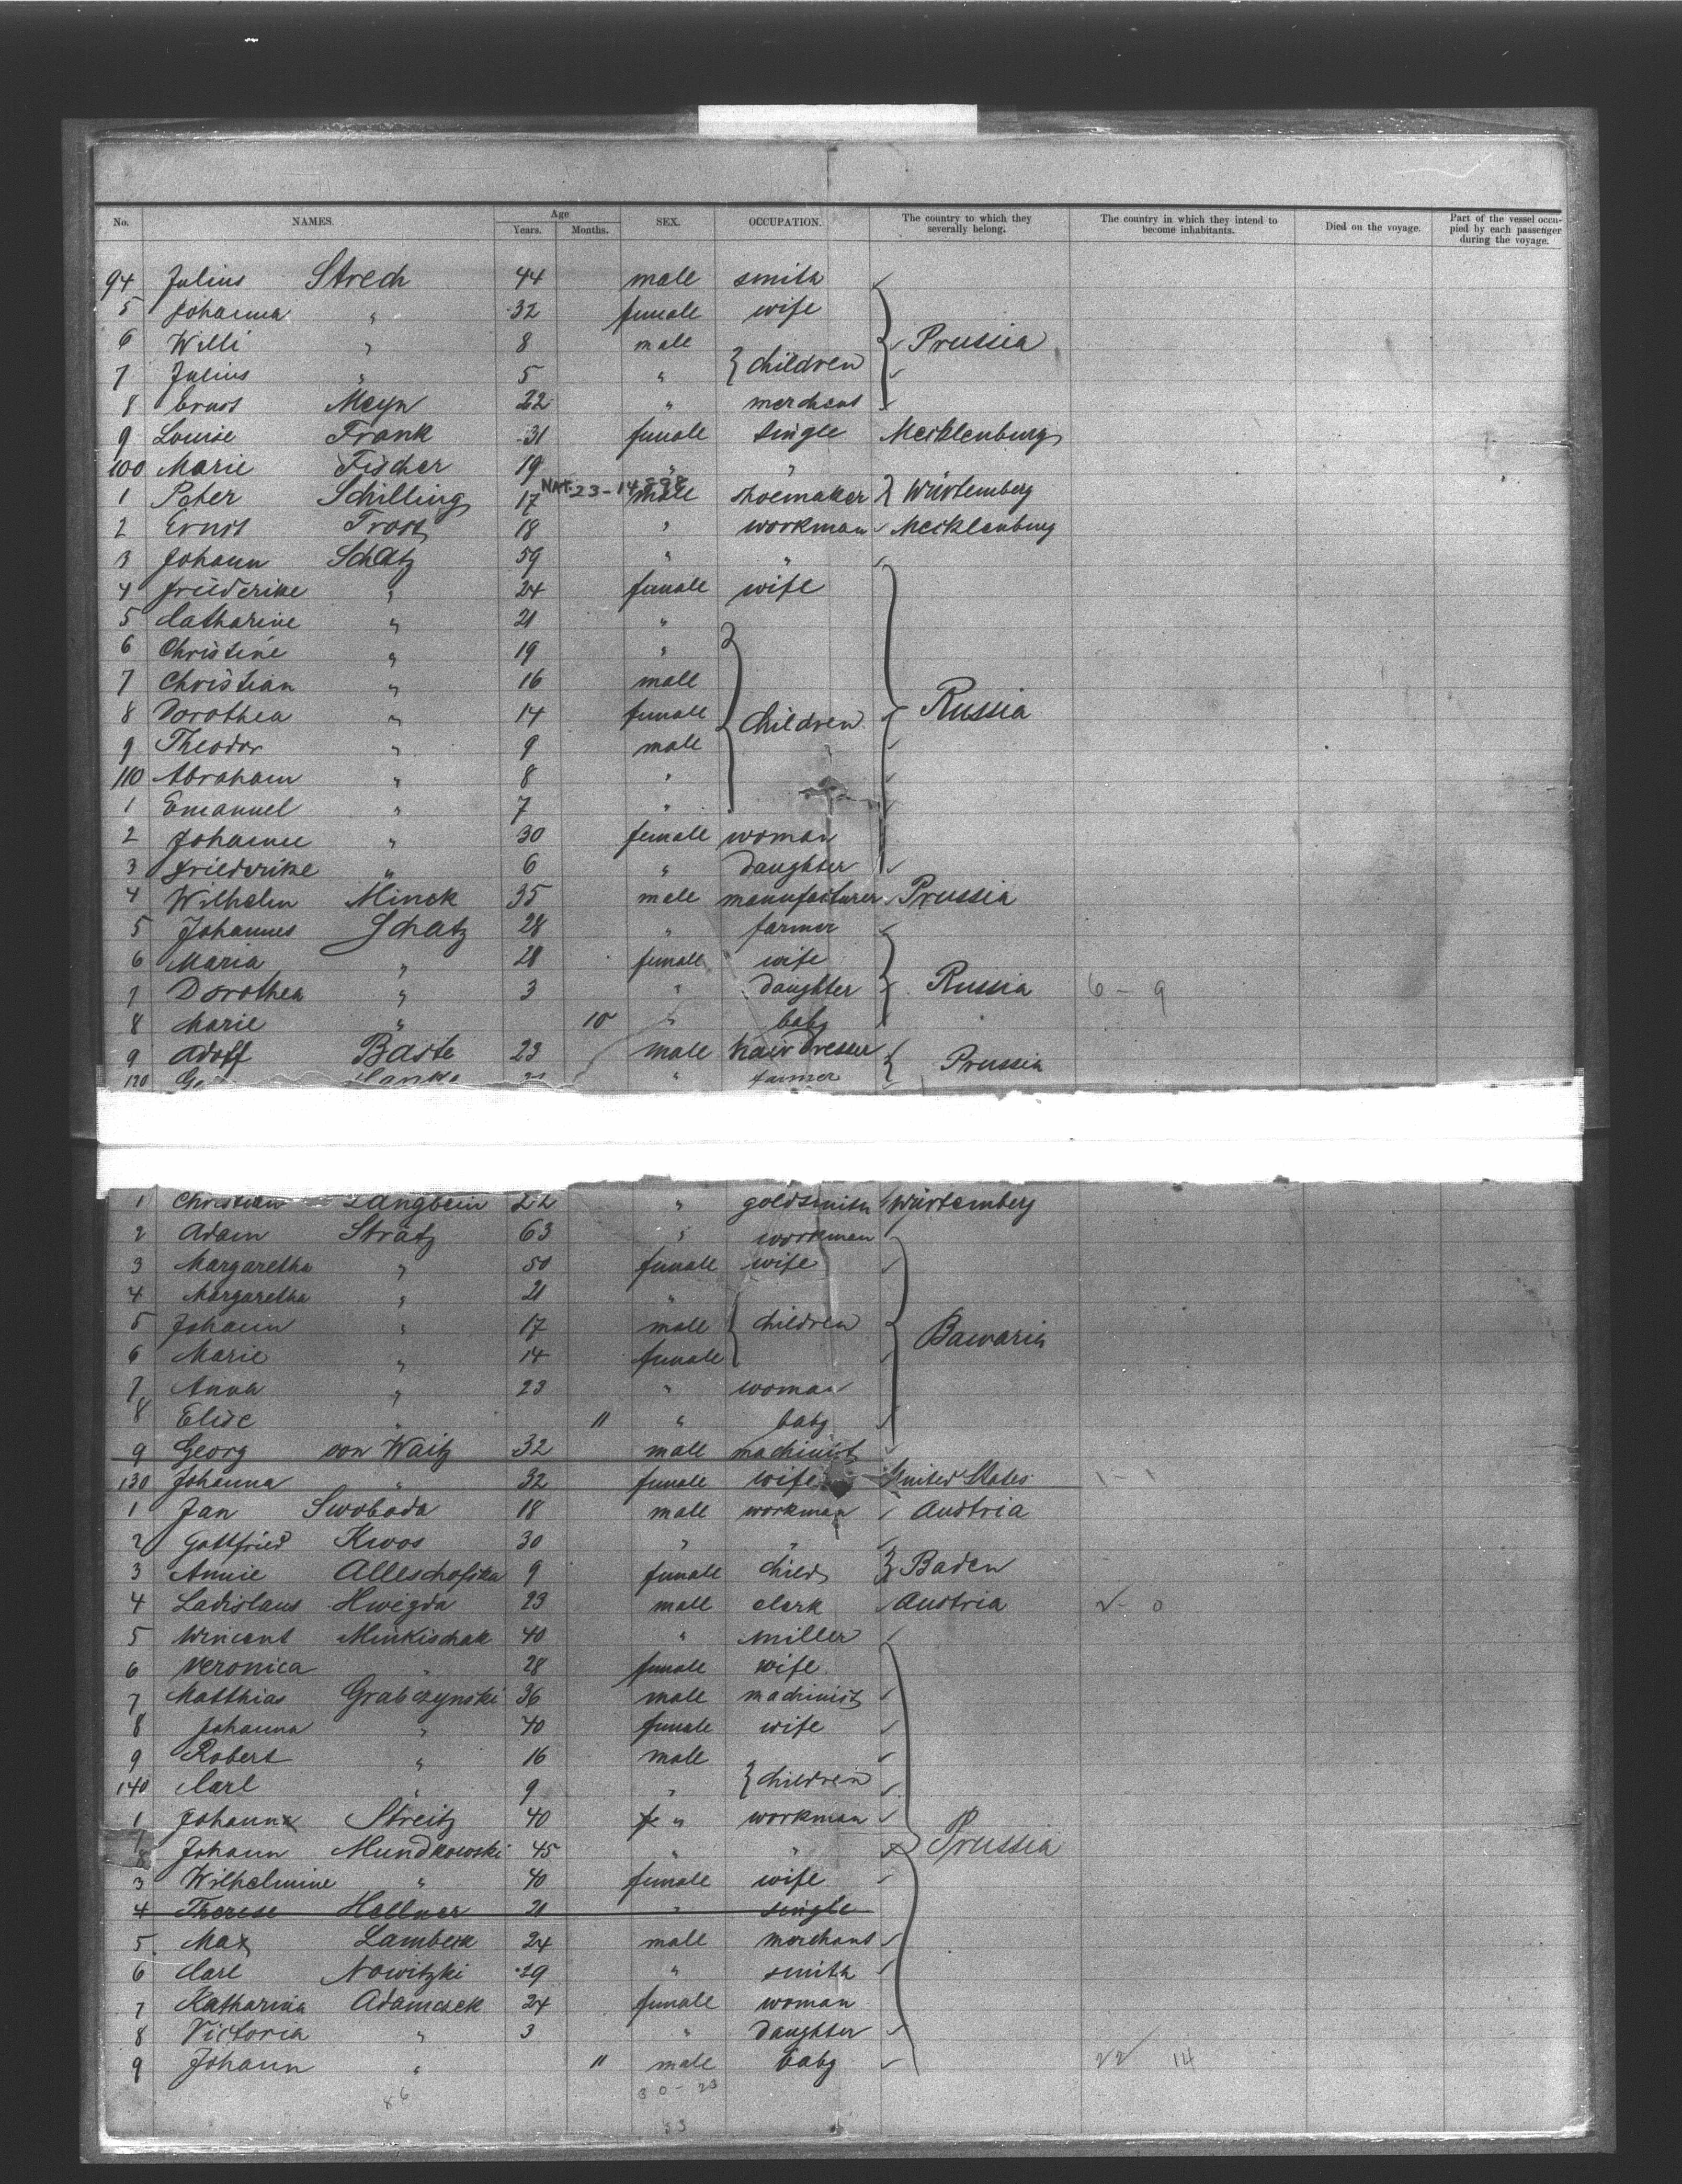 No. NAMES. Age Years. Months. SEX. OCCUPATION. The country to which they severally belong. The country in which they intend to become inhabitants. Died on the voyage. Part of the vessel occupied by each passenger during the voyage.
94 Julius Strech 44 male smith
5 Johanna " 32 female wife
6 Willi " 8 male Prussia
7 Julius " 5 " children
8 Ernst Meyn 22 " merchant
9 Louise Frank 31 female single Mecklenburg
100 Marie Fischer 19 " "
1 Peter Schilling 17 male shoemaker Würtemberg
2 Ernst Trost 18 " workman Mecklenburg
3 Johann Schatz 59 " "
4 Friederike " 24 female wife
5 Catharine " 21 "
6 Christine " 19 "
7 Christian " 16 male
8 Dorothea " 14 female children Russia
9 Theodor " 9 male
110 Abraham " 8 "
1 Emanuel " 7 "
2 Johanne " 30 female woman
3 Friederike " 6 " daughter
4 Wilhelm Minck 35 male manufacturer Prussia
5 Johannes Schatz 28 " farmer
6 Maria " 28 female wife
7 Dorothea " 3 " daughter Russia 6 - 9
8 Marie " 10 " baby
9 Adolf Baste 23 male hairdresser Prussia
120 " farmer
1 Christian Langbein 22 " goldsmith Würtemberg
2 Adam Stratz 63 " workman
3 Margaretha " 50 female wife
4 Margaretha " 21 "
5 Johann " 17 male children Bawaria
6 Marie " 14 female
7 Anna " 23 " woman
8 Elise " 11 " baby
9 Georg von Waitz 32 male machinist
130 Johanna " 32 female wife United States 1 - 1
1 Jan Swoboda 18 male workman Austria
2 Gottfried Kwos 30 " "
3 Annie Alleschofska 9 female child Baden
4 Ladislaus Hwégda 23 male clerk Austria 2 - 0
5 Wincent Minkischak 40 " miller
6 Veronica " 28 female wife
7 Matthias Grabczynski 36 male machinist
8 Johanna " 40 female wife
9 Robert " 16 male
140 Carl " 9 " children
1 Johann Streitz 40 " workman
Johann Mundkowski 45 " " Prussia
3 Wilhelmine " 40 female wife
4 Therese Hellner 21 " single
5 Max Lambeck 24 male merchant
6 Carl Nowitzki 29 " smith
7 Katharina Adamczek 24 female woman
8 Victoria " 3 " daughter
9 Johann " 11 male baby 22 14
86 30 - 23
53